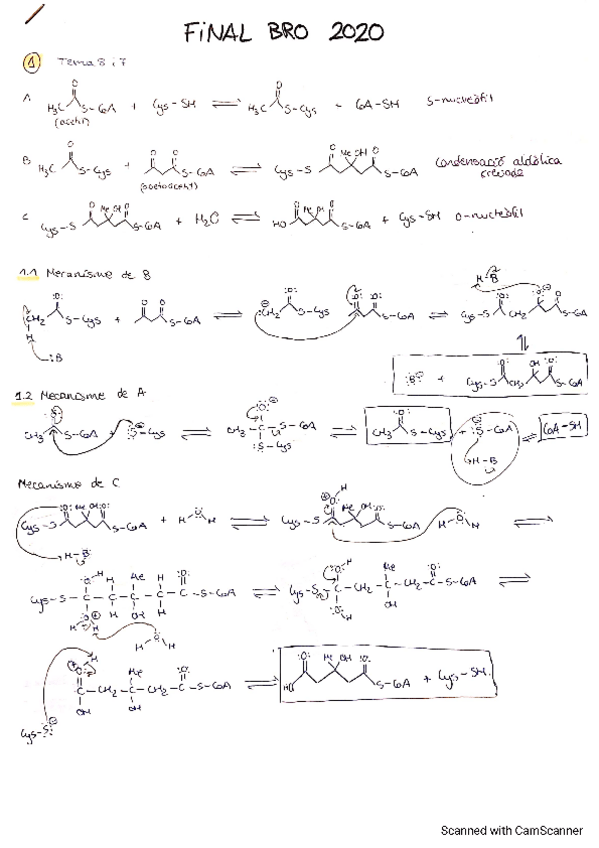 FINAL BRO 2020
1 Tema 8 i 7
A. H3C S-CoA + Cys-SH ⇌ H3C S-Cys - CoA-SH S-nucleòfil
(acetil)
B H3C S-Cys + S-CoA ⇌ Cys-S Me OH S-CoA Condensació aldòlica creuada
(acetoacetil)
C Cys-S Me OH S-CoA + H2O ⇌ HO Me OH S-CoA + Cys-SH O-nucleòfil
1.1 Mecanisme de B
CH2 S-Cys + S-CoA ⇌ CH2 S-Cys S-CoA ⇌ Cys-S CH2 S-CoA
H :B H-B
:B⊖ + Cys-S CH2 OH S-CoA
1.2 Mecanisme de A
CH3 S-CoA + :S-Cys ⇌ CH3-C-S-CoA ⇌ CH3 S-Cys + :S-CoA ⇌ CoA-SH
:S-Cys H-B
Mecanisme de C
Cys-S Me OH S-CoA + H O H ⇌ Cys-S Me OH S-CoA H O H ⇌
H-B
Cys-S-C-C-C-C-C-S-CoA ⇌ Cys-S-C-CH2-C-CH2-C-S-CoA ⇌
C-CH2-C-CH2-C-S-CoA ⇌ HO Me OH S-CoA + Cys-SH
OH OH
Cys-S:⊖
Scanned with CamScanner